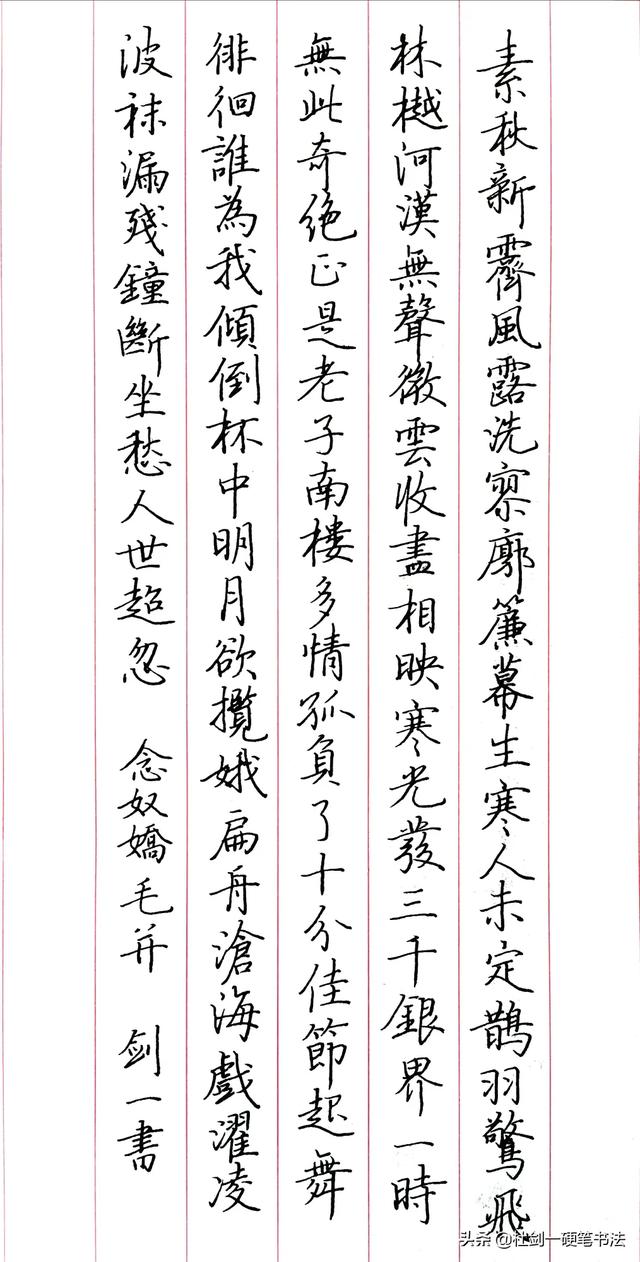 素秋新霽風露洗寥廓簾幕生寒人未定鵲羽驚飛
林樾河漢無聲微雲收盡相映寒光發三千銀界一時
無此奇絶正是老子南楼多情孤負了十分佳節起舞
徘徊誰為我傾倒杯中明月欲攬娥扁舟滄海戲濯凌
波袜漏殘鐘斷坐愁人世超忽 念奴嬌毛并 剑一書
头条 @杜剑一硬笔书法